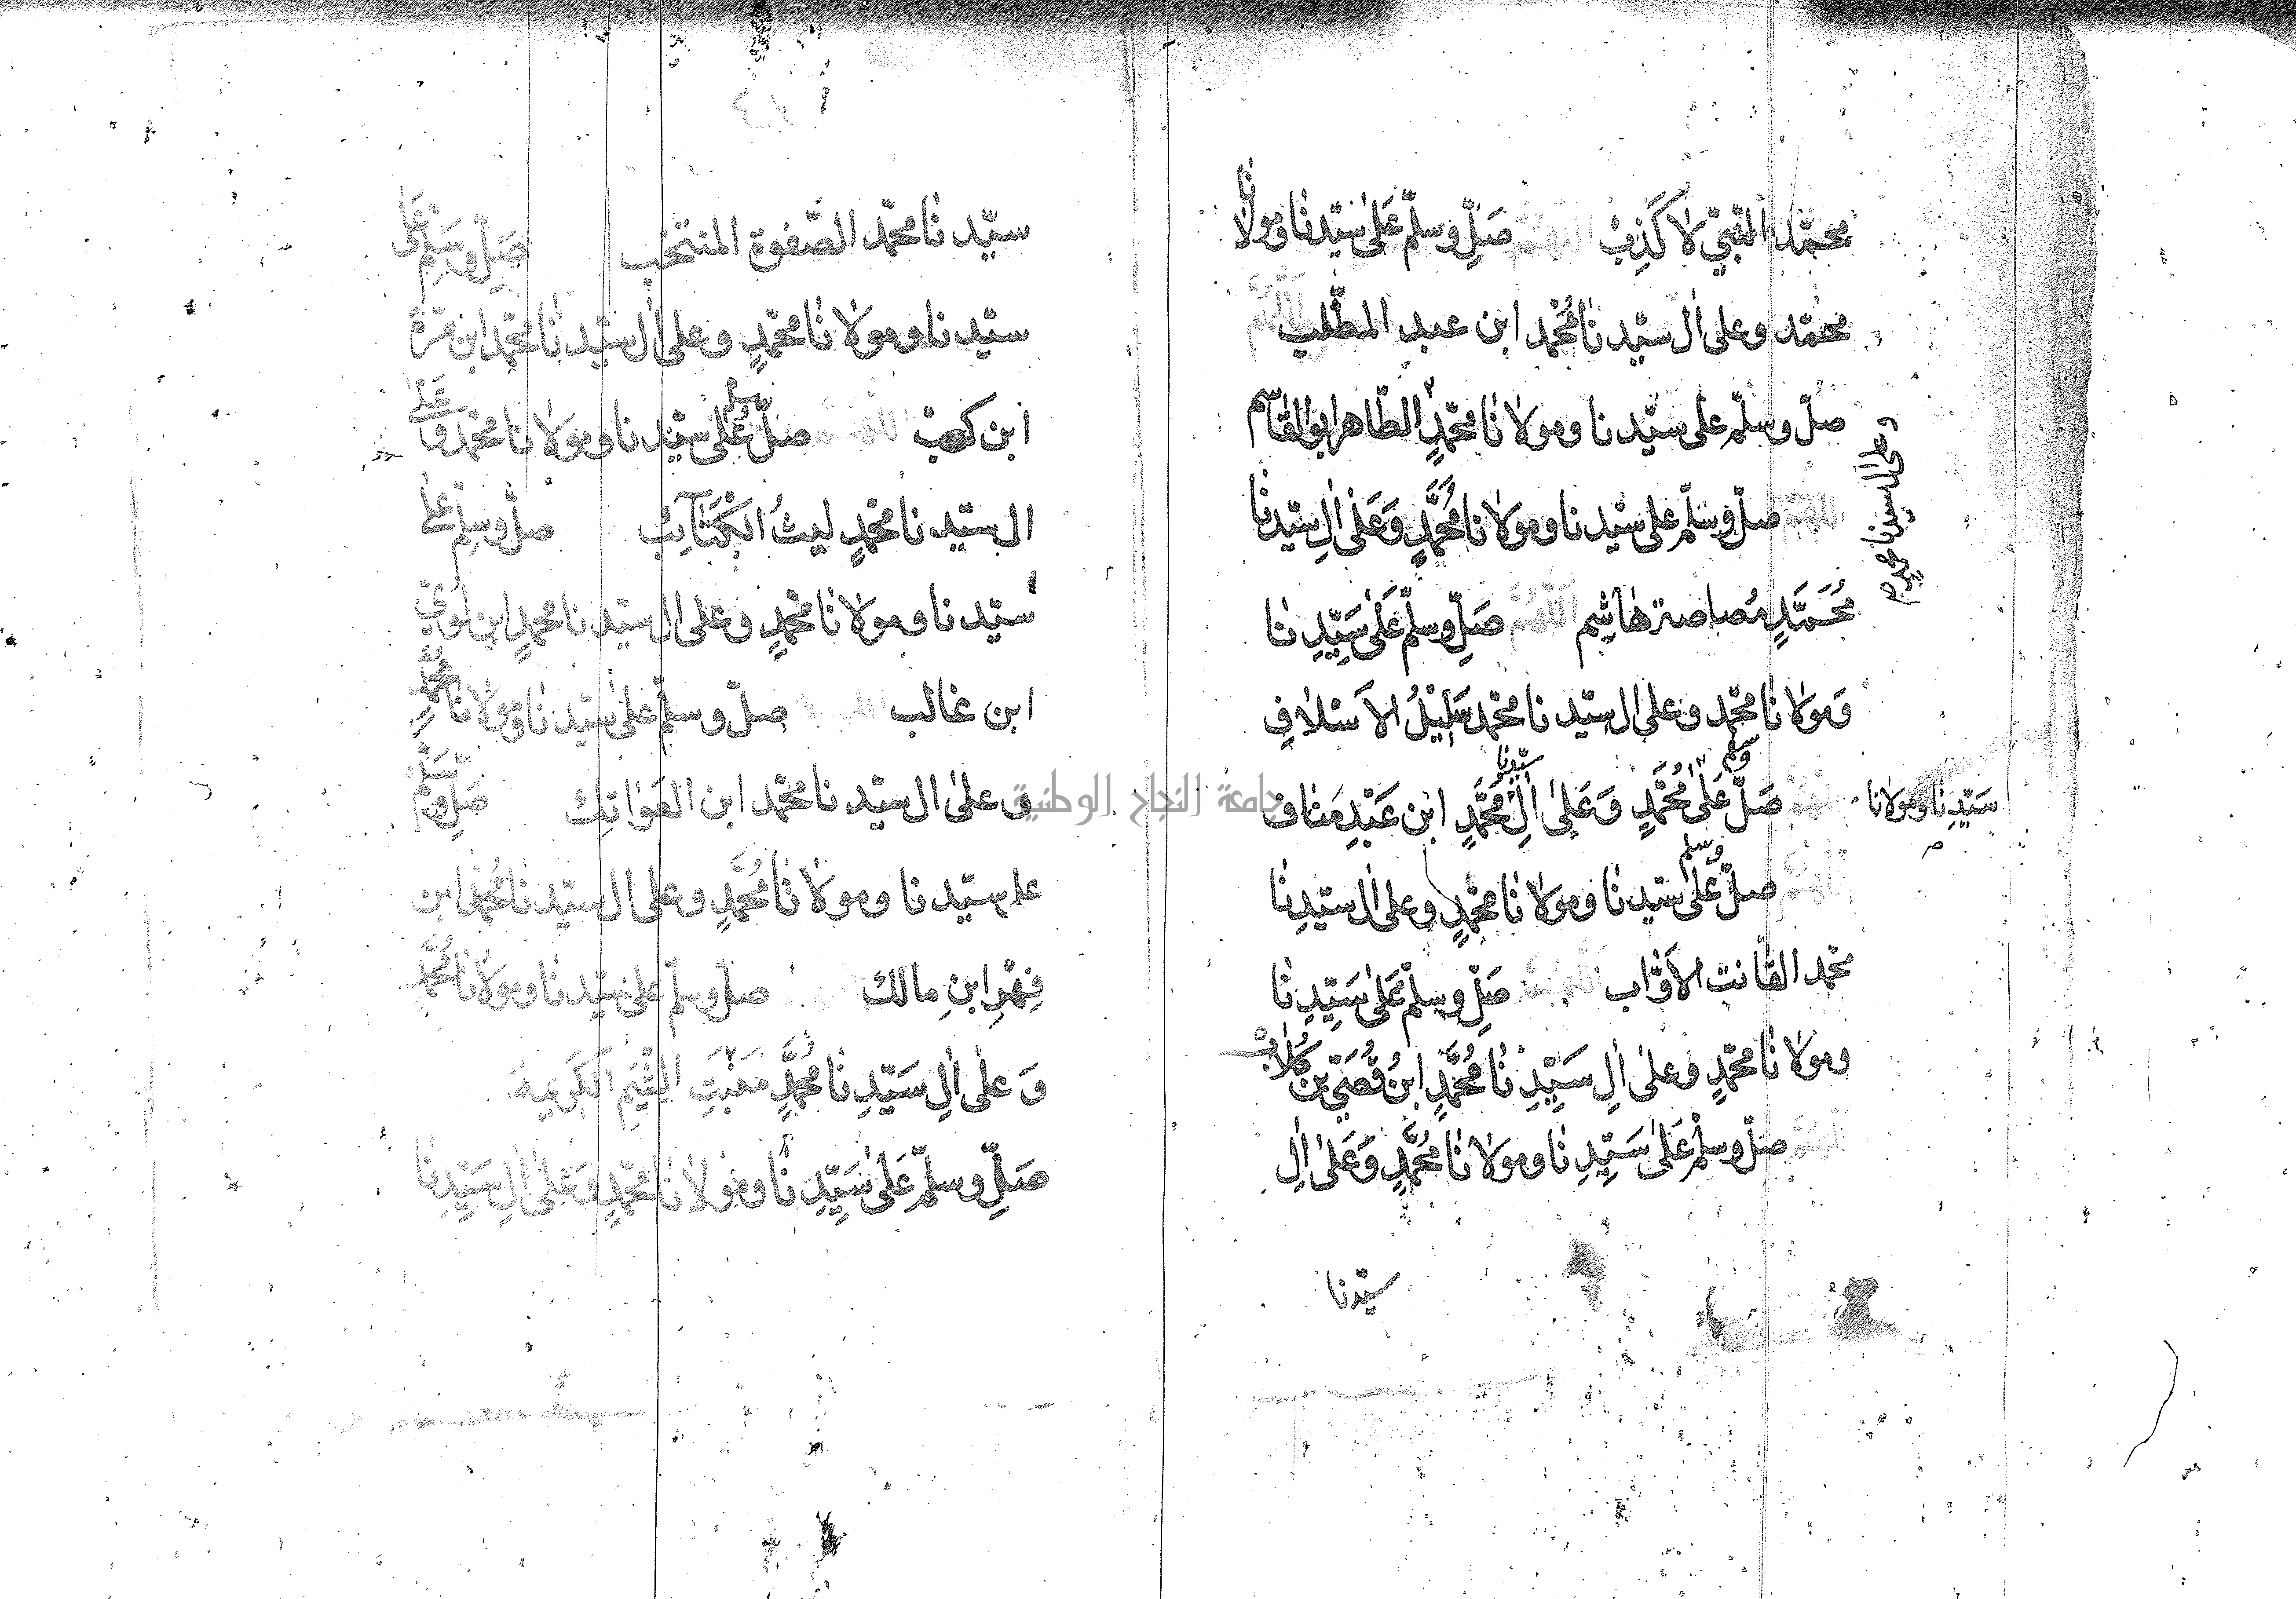 محمّد النبيّ لا كَذِبْ اللهمّ صَلِّ وسلّم عَلٰى سيّدنا ومولانا
محمّد وعلى اٰل سيّدنا مُحمّد ابن عبد المطّلب اللّٰهمّ
صلّ وسلّم على سيّدنا ومولانا محمّدٍ الطّاهر ابو القاسم
وعلى ال سيدنا محمد
اللهمّ صلّ وسلّم على سيّدنا ومولانا مُحَمَّدٍ وَعَلٰى اٰلِ سيّدنا
مُحَمَّدٍ مُصاصة هٰاشِم اللّهُمّ صَلِّ وسلّم عَلٰى سَيِّدِنا
وَمولانا محمّد وعلى ال سيّدنا محمّد سَلِيْلُ الاَسْلافِ
اللهمّ صَلّ وسلم عَلٰى مُحَمَّدٍ وَعَلىٰ اٰلِ سيّدنا مُحَمَّدٍ ابن عَبْدِ مَناف
سَيّدِنا ومولانا
اللهمّ صلّ وسلم عَلىٰ سيّدنا ومولانا محمّدٍ وعلى اٰل سيّدِنا
محمّد القانت الاَوّاب اللّهمّ صَلِّ وسلّم عَلىٰ سَيّدِنا
ومولانا محمّدٍ وعلى اٰلِ سَيِّدِنا مُحَمَّدٍ ابنُ قُصَيّ بن كُلابْ
اللهمّ صلّ وسلّم عَلىٰ سَيّدِنا ومولانا مُحَمَّدٍ وَعَلىٰ اٰلِ
سيّدنا
سيّدنا محمّد الصّفوة المنتخب صَلِّ وسَلِّم عَلى
سيّدنا ومولانا محمّدٍ وعلى اٰل سيّدنا محمّد ابن مرّة
ابن كعب صلّ وسلم عَلى سيّدنا ومولانا محمّد وعَلى
ال سيّدنا محمّدٍ ليثُ الكَتَآئِبْ صلّ وسلِّم على
سيّدنا ومولانا محمّدٍ وعلى ال سيّدنا محمدٍ ابن لُويّ
ابن غالب صلّ وسلّم علىٰ سيّدنا ومولانا مُحمّدٍ
وعلىٰ ال سيّدنا محمّد ابن العَوٰاتِك صَلّ وسَلِّم
على سيّدنا ومولانا مُحَمَّدٍ وعلى ال سيّدنا مُحمّد ابن
فِهْرِ ابنِ مالك صلّ وسلّم على سيّدنا ومولانا مُحَمَّدٍ
وَعلىٰ اٰلِ سَيّدِنا مُحَمَّدٍ مَنْبَتِ الشِّيَمِ الكَرِيمة
صَلِّ وسلّم عَلىٰ سَيِّدِنا ومَوْلانا محمّدٍ وَعَلىٰ اٰلِ سَيّدِنا
جامعة النجاح الوطنية